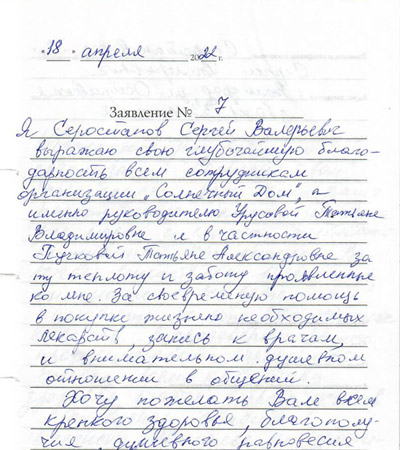 "18" апреля 2022 г.
Заявление № 7
Я Серостанов Сергей Валерьевич
выражаю свою глубочайшую благо-
дарность всем сотрудникам
организации "Солнечный Дом", а
именно руководителю Урусовой Татьяне
Владимировне и в частности
Пучковой Татьяне Александровне за
ту теплоту и заботу проявленные
ко мне. За своевременую помощь
в покупке жизнено необходимых
лекарств, запись к врачам,
и внимательном, душевном
отношении в общении.
Хочу пожелать Вам всем
крепкого здоровья, благополу-
чия, душевного равновесия